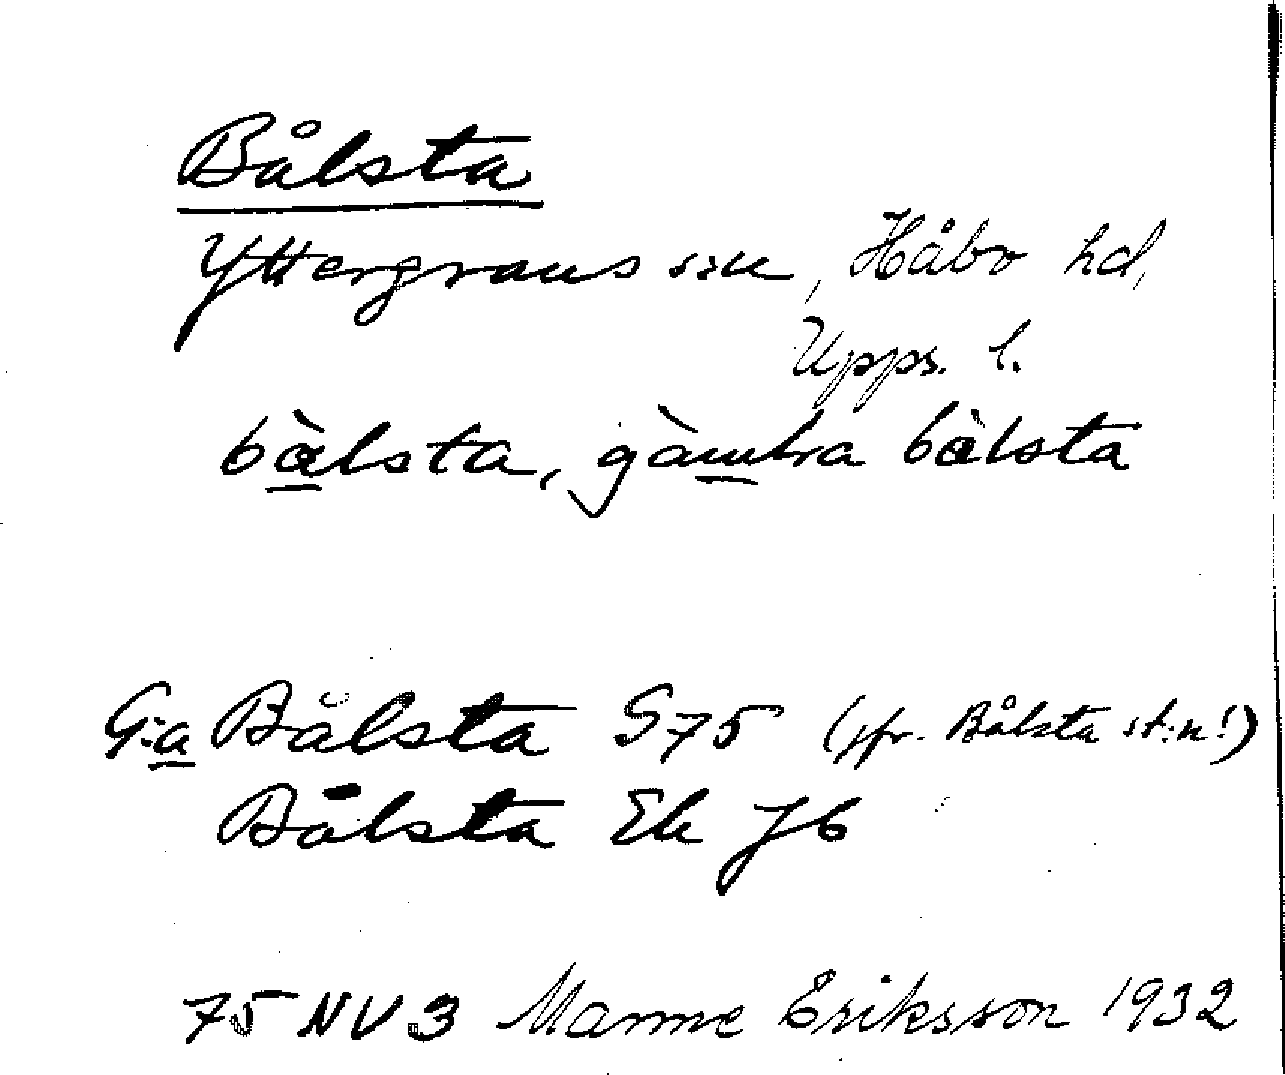 Bålsta
Yttergrans sn, Håbo hd,
Upps. l.
bàlsta, gàmbra bàlsta
G:a Bålsta G75 (jfr. Bålsta st:n!)
Bålsta Ek Jb
75 NV 3 Manne Eriksson 1932